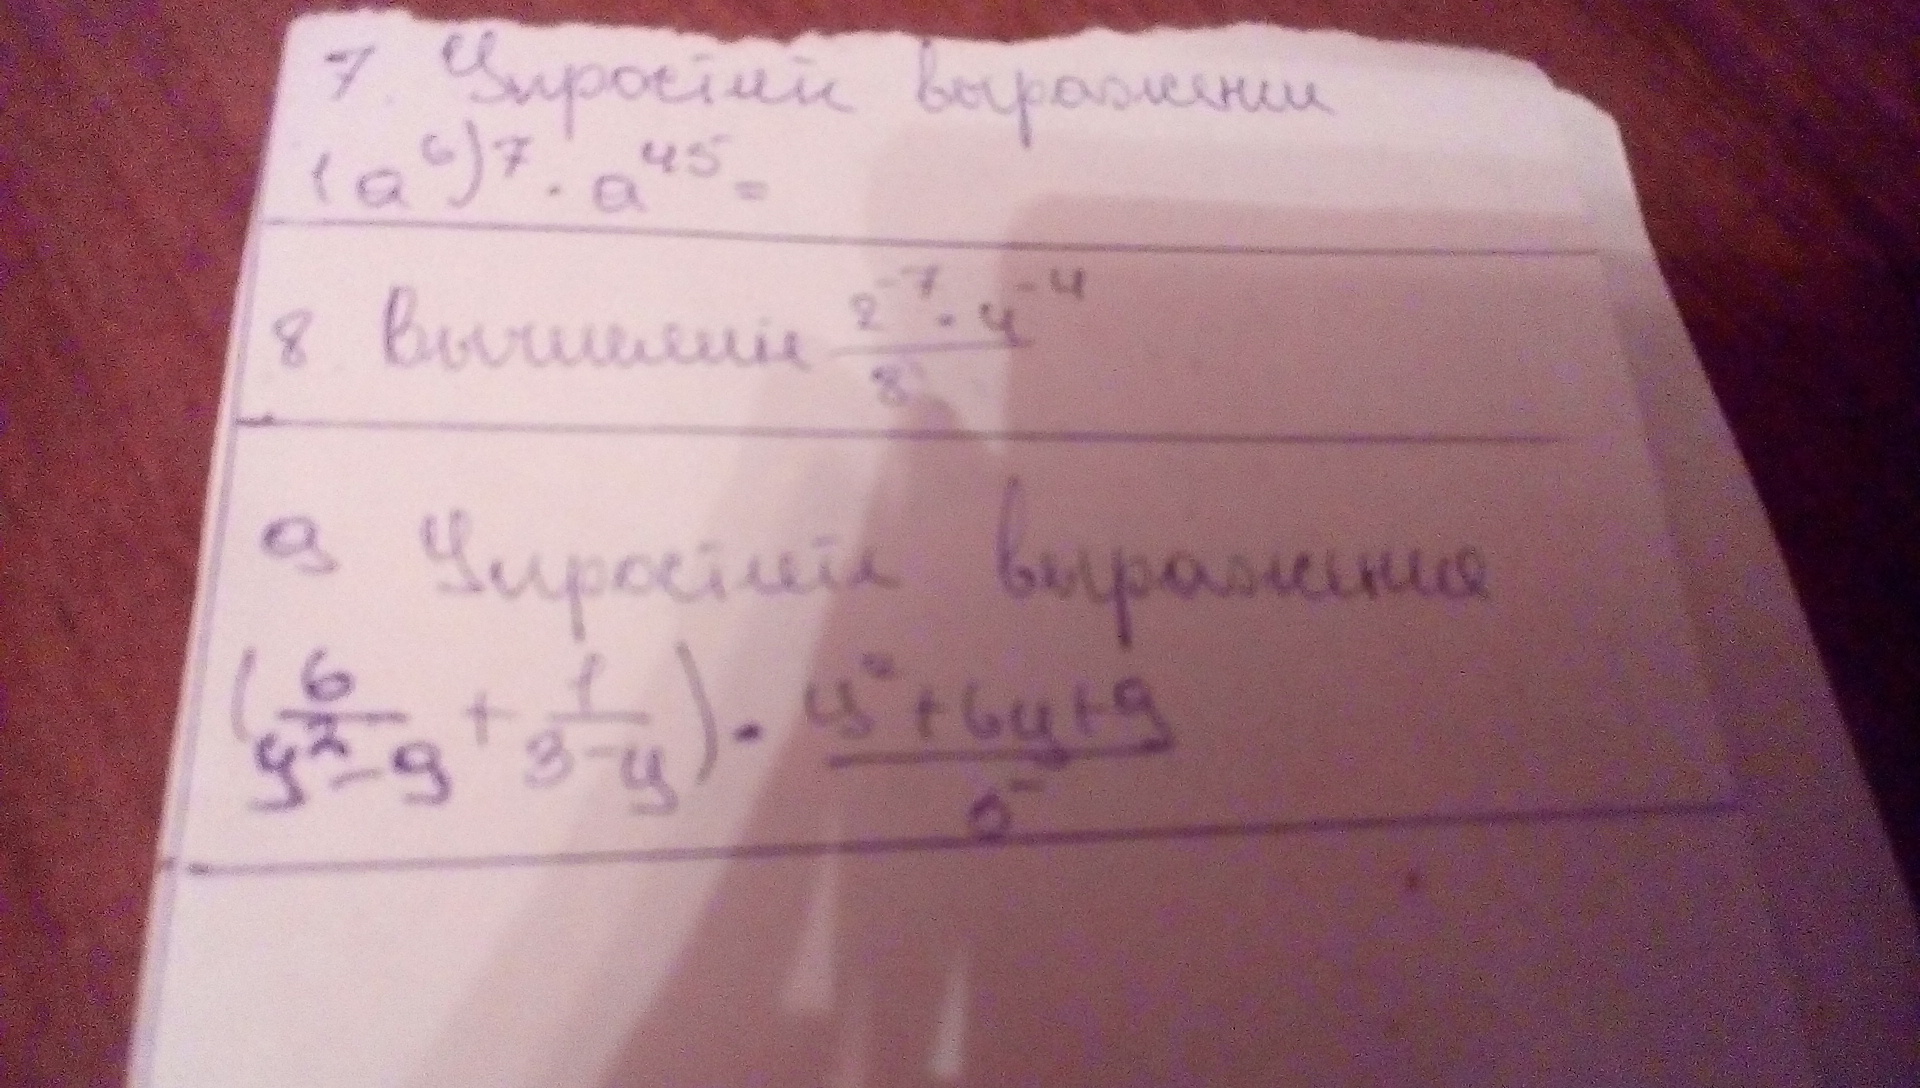 7. Упростить выражении
(a⁶)⁷ · a⁴⁵ =
8 Вычислить (2⁻⁷ · 4⁻⁴)/8
9 Упростить выражения
(6/(y² - 9) + 1/(3 - y)) · (y² + 6y + 9)/5